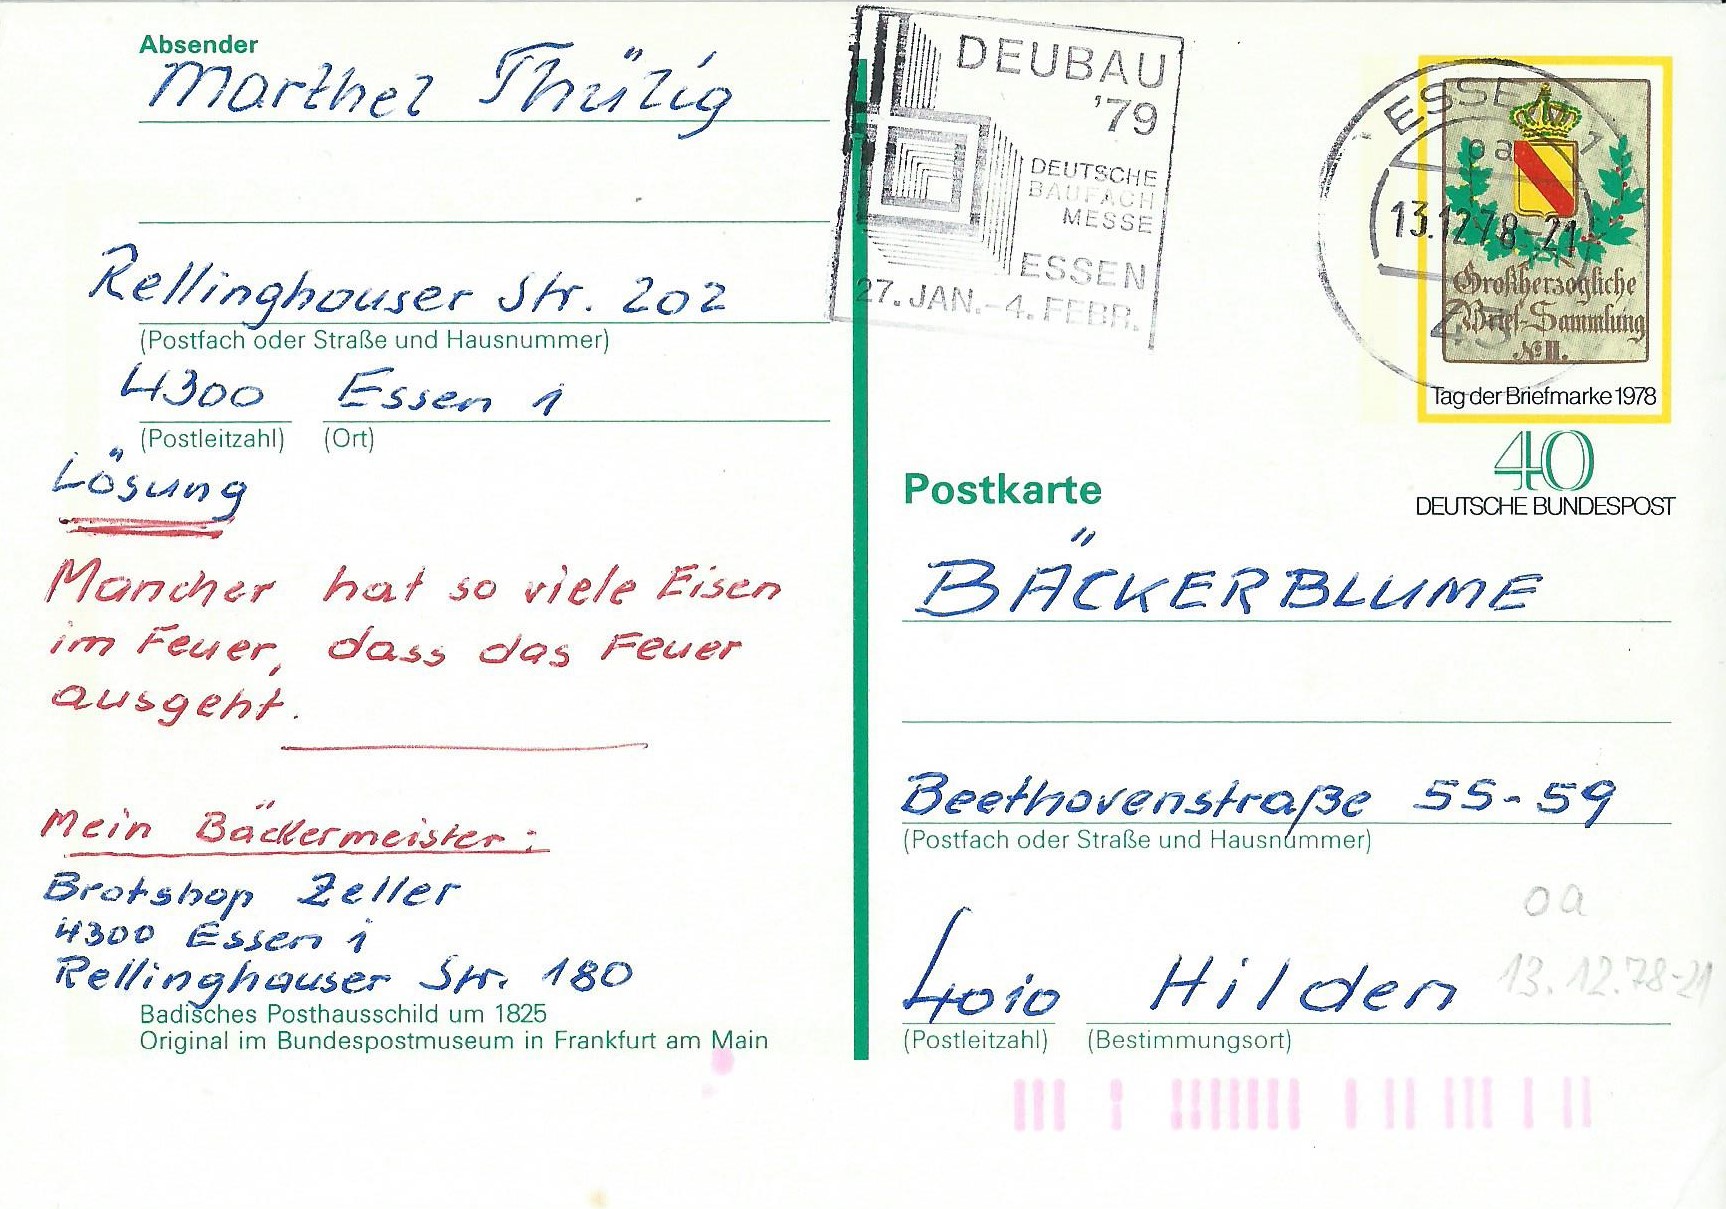 Absender
Marthel Thülig
Rellinghauser Str. 202
(Postfach oder Straße und Hausnummer)
4300 Essen 1
(Postleitzahl) (Ort)
Lösung
Mancher hat so viele Eisen
im Feuer, dass das Feuer
ausgeht.
Mein Bäckermeister:
Brotshop Zeller
4300 Essen 1
Rellinghauser Str. 180
Badisches Posthausschild um 1825
Original im Bundespostmuseum in Frankfurt am Main
DEUBAU
'79
DEUTSCHE
BAUFACH
MESSE
ESSEN
27. JAN.-4. FEBR.
ESSEN 1
oa
13.12.78-21
43
Großherzogliche
Brief-Sammlung
№ II.
Tag der Briefmarke 1978
40
DEUTSCHE BUNDESPOST
Postkarte
BÄCKERBLUME
Beethovenstraße 55-59
(Postfach oder Straße und Hausnummer)
oa
4010 Hilden
13.12.78-21
(Postleitzahl) (Bestimmungsort)